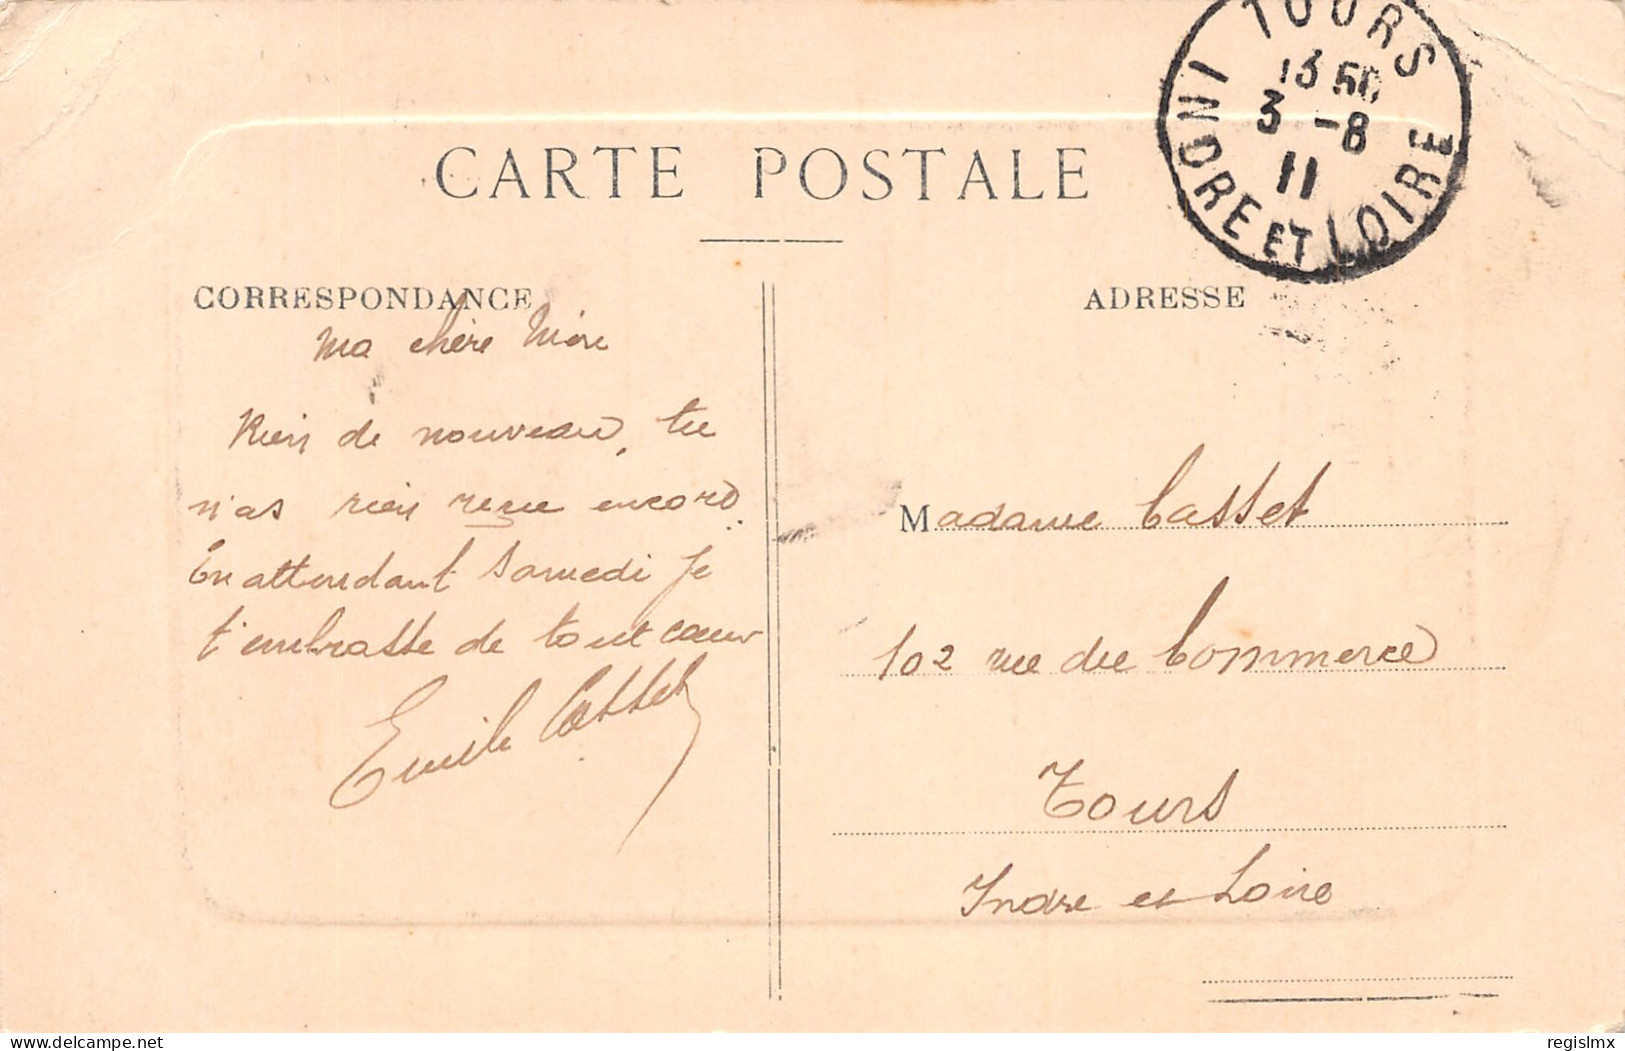 TOURS
13 50
3 -8
11
INDRE ET LOIRE
CARTE POSTALE
CORRESPONDANCE
ADRESSE
Ma chère Mère
Rien de nouveau, tu
n'as rien reçue encore
En attendant Samedi je
t'embrasse de tout cœur
Emile Casset
Madame Casset
102 rue du Commerce
Tours
Indre et Loire
delcampe.net
regislmx